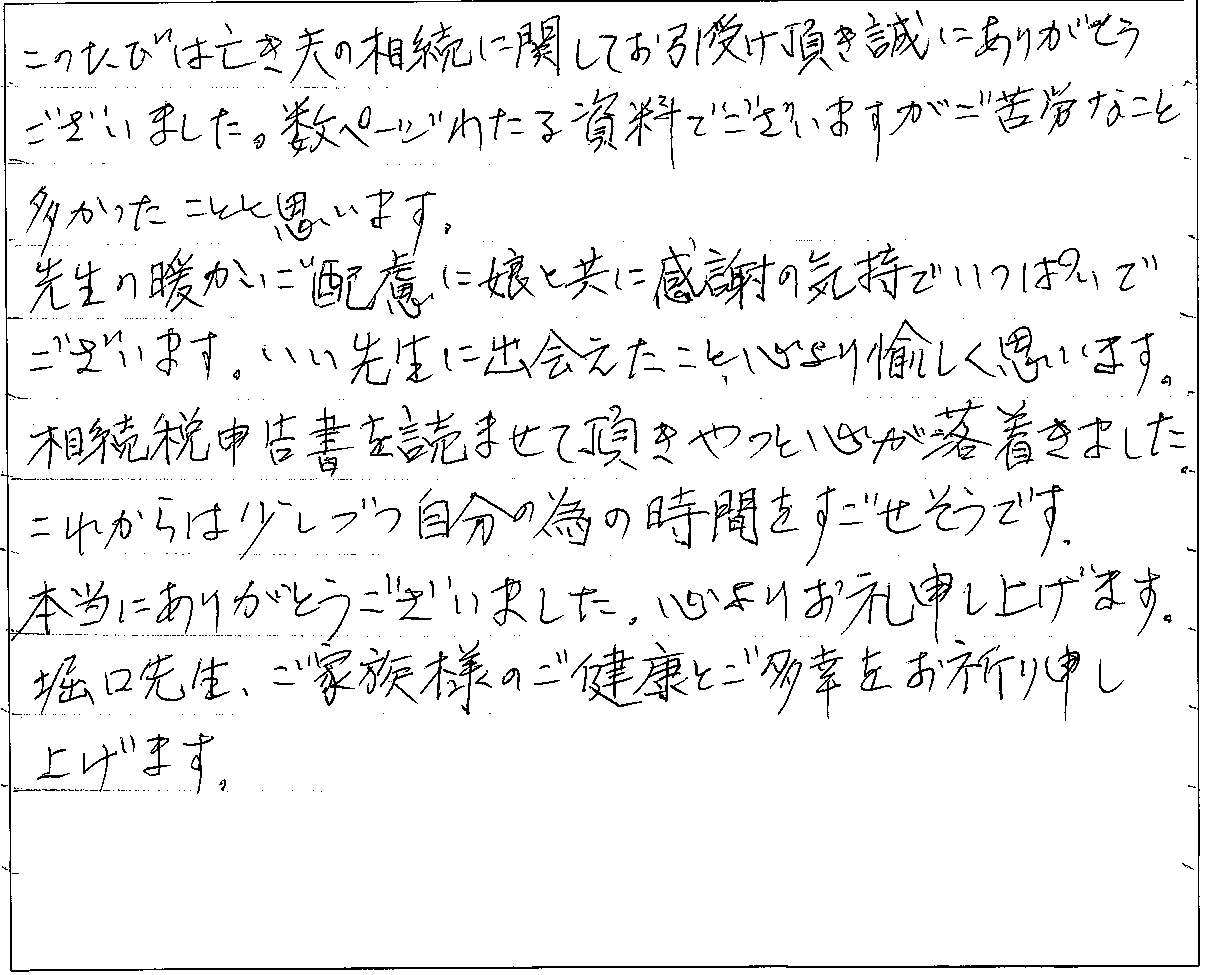 このたびは亡き夫の相続に関してお引受け頂き誠にありがとう
ございました。数ページわたる資料でございますがご苦労なこと
多かったことと思います。
先生の暖かいご配慮に娘と共に感謝の気持でいっぱいで
ございます。いい先生に出会えたこと、心より愉しく思います。
相続税申告書を読ませて頂きやっと心が落着きました。
これからは少しづつ自分の為の時間をすごせそうです。
本当にありがとうございました。心よりお礼申し上げます。
堀口先生、ご家族様のご健康とご多幸をお祈り申し
上げます。